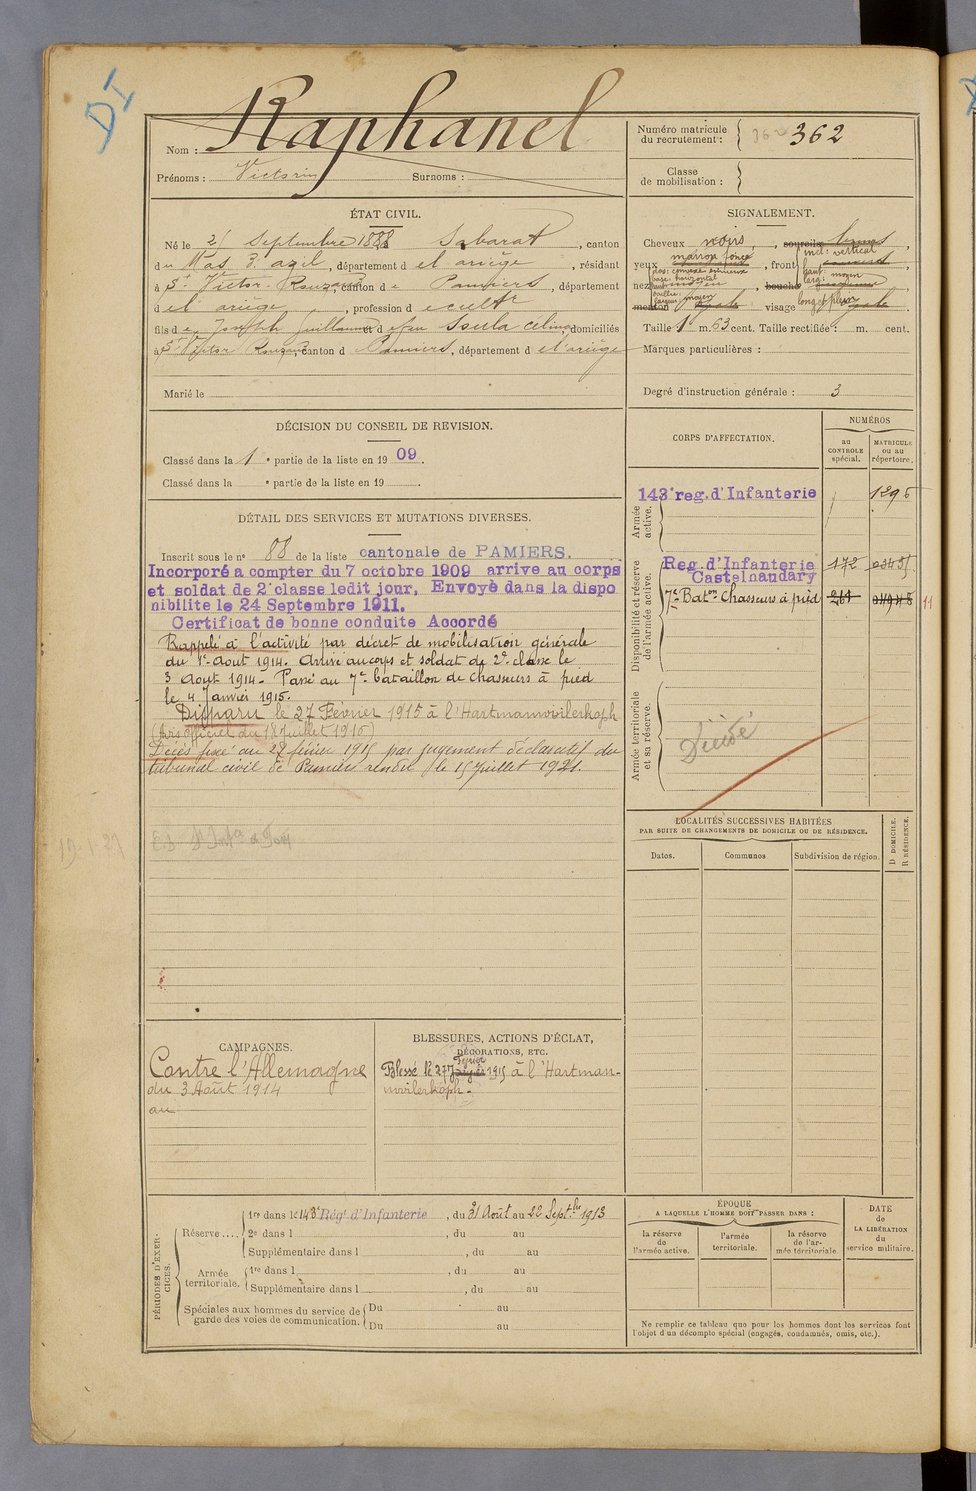 DI
Nom : Raphanel
Prénoms : Victorin Surnoms :
Numéro matricule du recrutement : 362 362
Classe de mobilisation :
ÉTAT CIVIL.
Né le 21 Septembre 1888 Sabarat, canton
du Mas d'azil, département de l'ariège, résidant
à St Victor-Rouzaud, canton de Pamiers, département
de l'ariège, profession de cultr
fils de Joseph Guillaume et de feu Céline, domiciliés
à St Victor Rouzaud, canton d Pamiers, département de l'ariège
Marié le
SIGNALEMENT.
Cheveux noirs, sourcils bruns,
yeux marron foncé, front incl: vertical
haut: moyen
larg: moyen
nez base horizontal
bouche moyenne
menton visage long et plein
Taille 1 m. 63 cent. Taille rectifiée : m. cent.
Marques particulières :
Degré d'instruction générale : 3
DÉCISION DU CONSEIL DE REVISION.
Classé dans la 1 e partie de la liste en 1909.
Classé dans la e partie de la liste en 19 .
DÉTAIL DES SERVICES ET MUTATIONS DIVERSES.
Inscrit sous le n° 88 de la liste cantonale de PAMIERS.
Incorporé a compter du 7 octobre 1909 arrive au corps
et soldat de 2e classe ledit jour, Envoyé dans la dispo
nibilite le 24 Septembre 1911.
Certificat de bonne conduite Accordé
Rappelé à l'activité par décret de mobilisation générale
du 1er Aout 1914. Arrivé au corps et soldat de 2e classe le
3 Aout 1914 - Passé au 7e bataillon de Chasseurs à pied
le 4 Janvier 1915.
Disparu le 27 Février 1915 à l'Hartmanwilerkoph
(Avis officiel du 18 Juillet 1915)
Décès fixé au 28 février 1915 par jugement déclaratif du
tribunal civil de Pamiers rendu le 15 Juillet 1921.
CORPS D'AFFECTATION.
NUMÉROS
au CONTROLE spécial.
MATRICULE ou au répertoire.
Armée active.
143e reg. d'Infanterie 1296
Disponibilité et réserve de l'armée active.
Reg. d'Infanterie 172
Castelnaudary
7e Baton Chasseurs à pied 11
Armée territoriale et sa réserve.
Décédé
LOCALITÉS SUCCESSIVES HABITÉES
PAR SUITE DE CHANGEMENTS DE DOMICILE OU DE RÉSIDENCE.
Dates. Communes Subdivision de région. D DOMICILE. R RÉSIDENCE.
CAMPAGNES.
Contre l'Allemagne
du 3 Août 1914
au
BLESSURES, ACTIONS D'ÉCLAT,
DÉCORATIONS, ETC.
Février
Blessé le 27 1915 à l'Hartman-
nwilerkoph.
PÉRIODES D'EXERCICES.
Réserve .... 1re dans le 143e Rég. d'Infanterie, du 31 Août au 22 Septbre 1913
2e dans l , du au
Supplémentaire dans l , du au
Armée territoriale. 1re dans l , du au
Supplémentaire dans l , du au
Spéciales aux hommes du service de garde des voies de communication. Du au
Du au
ÉPOQUE
A LAQUELLE L'HOMME DOIT PASSER DANS :
la réserve de l'armée active.
l'armée territoriale.
la réserve de l'armée territoriale.
DATE de LA LIBÉRATION du service militaire.
Ne remplir ce tableau que pour les hommes dont les services font
l'objet d'un décompte spécial (engagés, condamnés, omis, etc.).